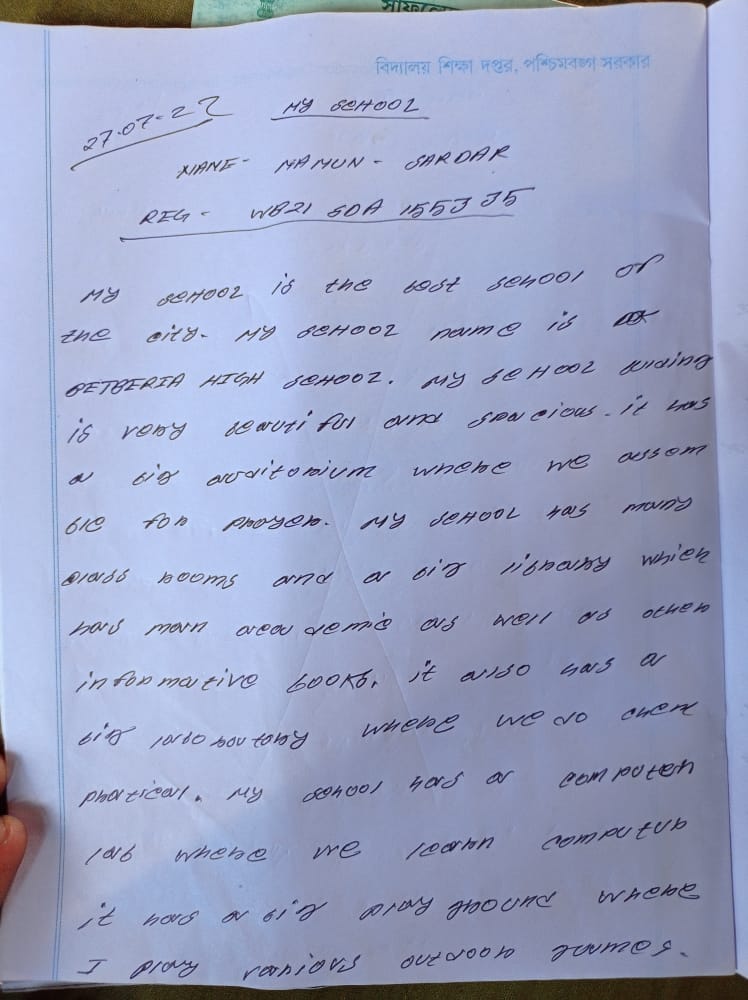 সাফল্যে
বিদ্যালয় শিক্ষা দপ্তর, পশ্চিমবঙ্গ সরকার
27.07-22 MY SCHOOL
NAME- MAMUN - SARDAR
REG - WB21 SDA 155335
My SCHOOL is the best school of
the city. My SCHOOL name is
BETBERIA HIGH SCHOOL. My SCHOOL buiding
is very beauti ful and spacious. it has
a big auditorium where we assem
ble for prayer. My SCHOOL has many
class rooms and a big library which
has man acou demic as well as other
informative books. it also has a
big labo ratory where we do chem
practical. My school has a computer
lab where we learn computer
it has a big play ground where
I play various outdoor